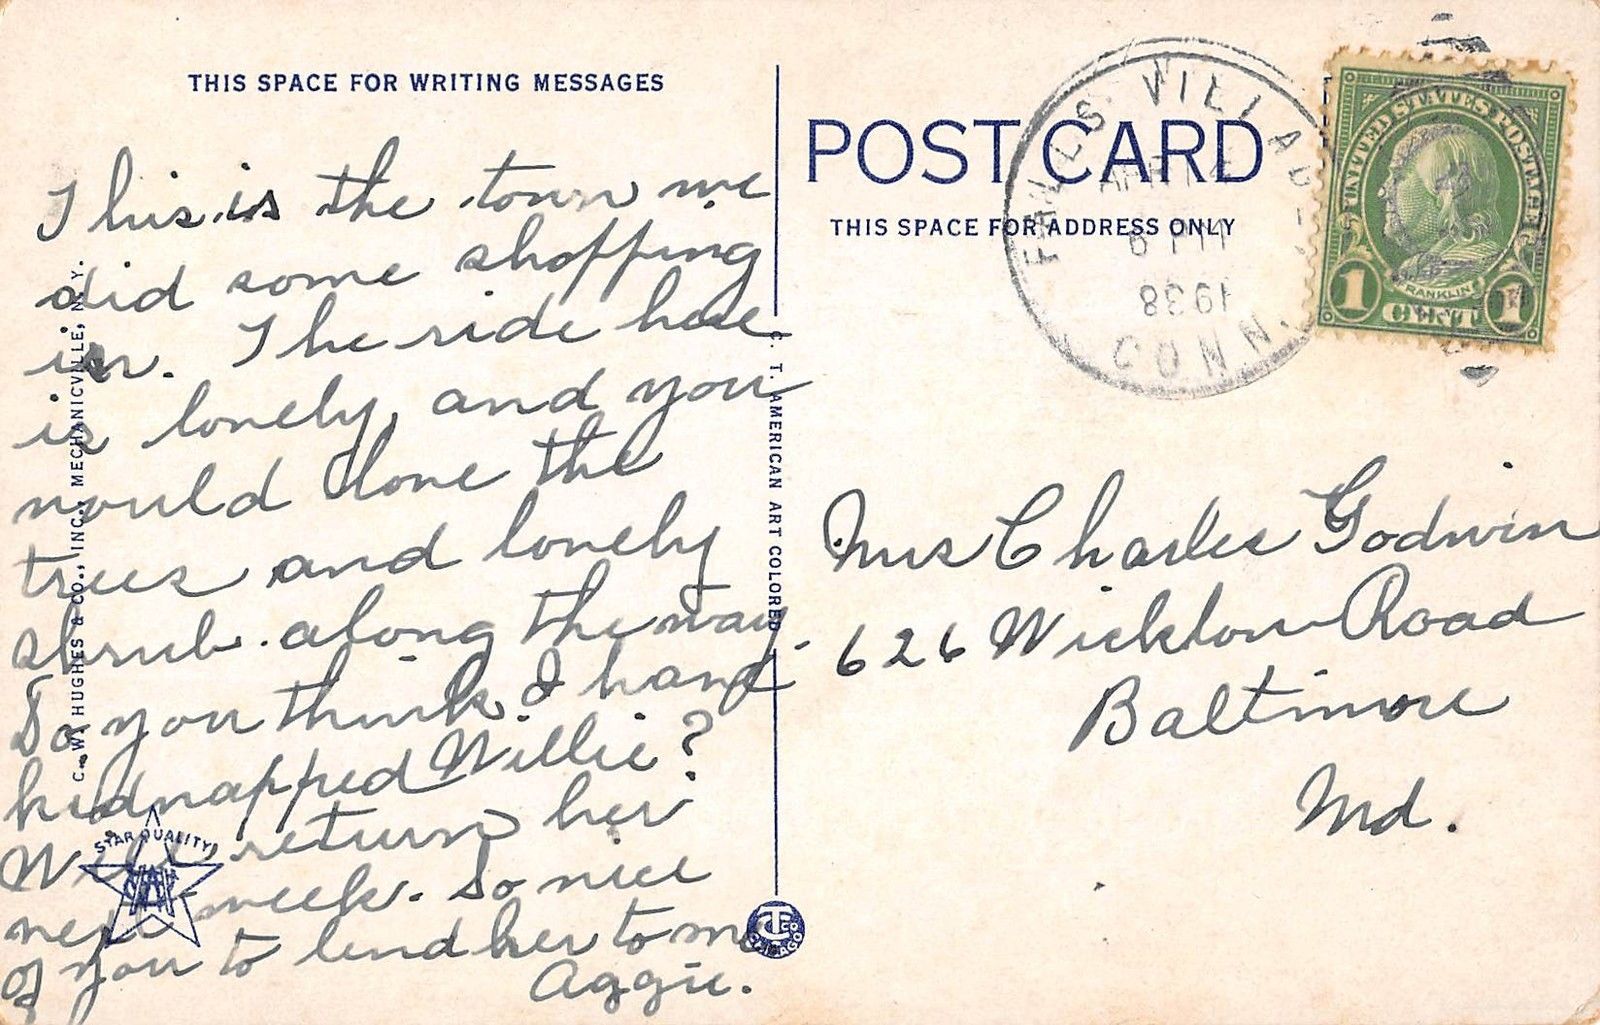 THIS SPACE FOR WRITING MESSAGES
This is the town we
did some shopping
in. The ride here
is lonely, and you
would love the
trees and lonely
shrub along the way.
Do you think I have
kidnapped Willie?
Will return her
next week. So nice
of you to lend her to me
Aggie.
C. W. HUGHES & CO., INC., MECHANICVILLE, N. Y.
STAR QUALITY
C. T. AMERICAN ART COLORED
CT CO
CHICAGO
POST CARD
THIS SPACE FOR ADDRESS ONLY
FALLS VILLAGE
APR
6 PM
1938
CONN.
UNITED STATES POSTAGE
FRANKLIN
1 CENT 1
Mrs Charles Godwin
626 Wicklow Road
Baltimore
Md.